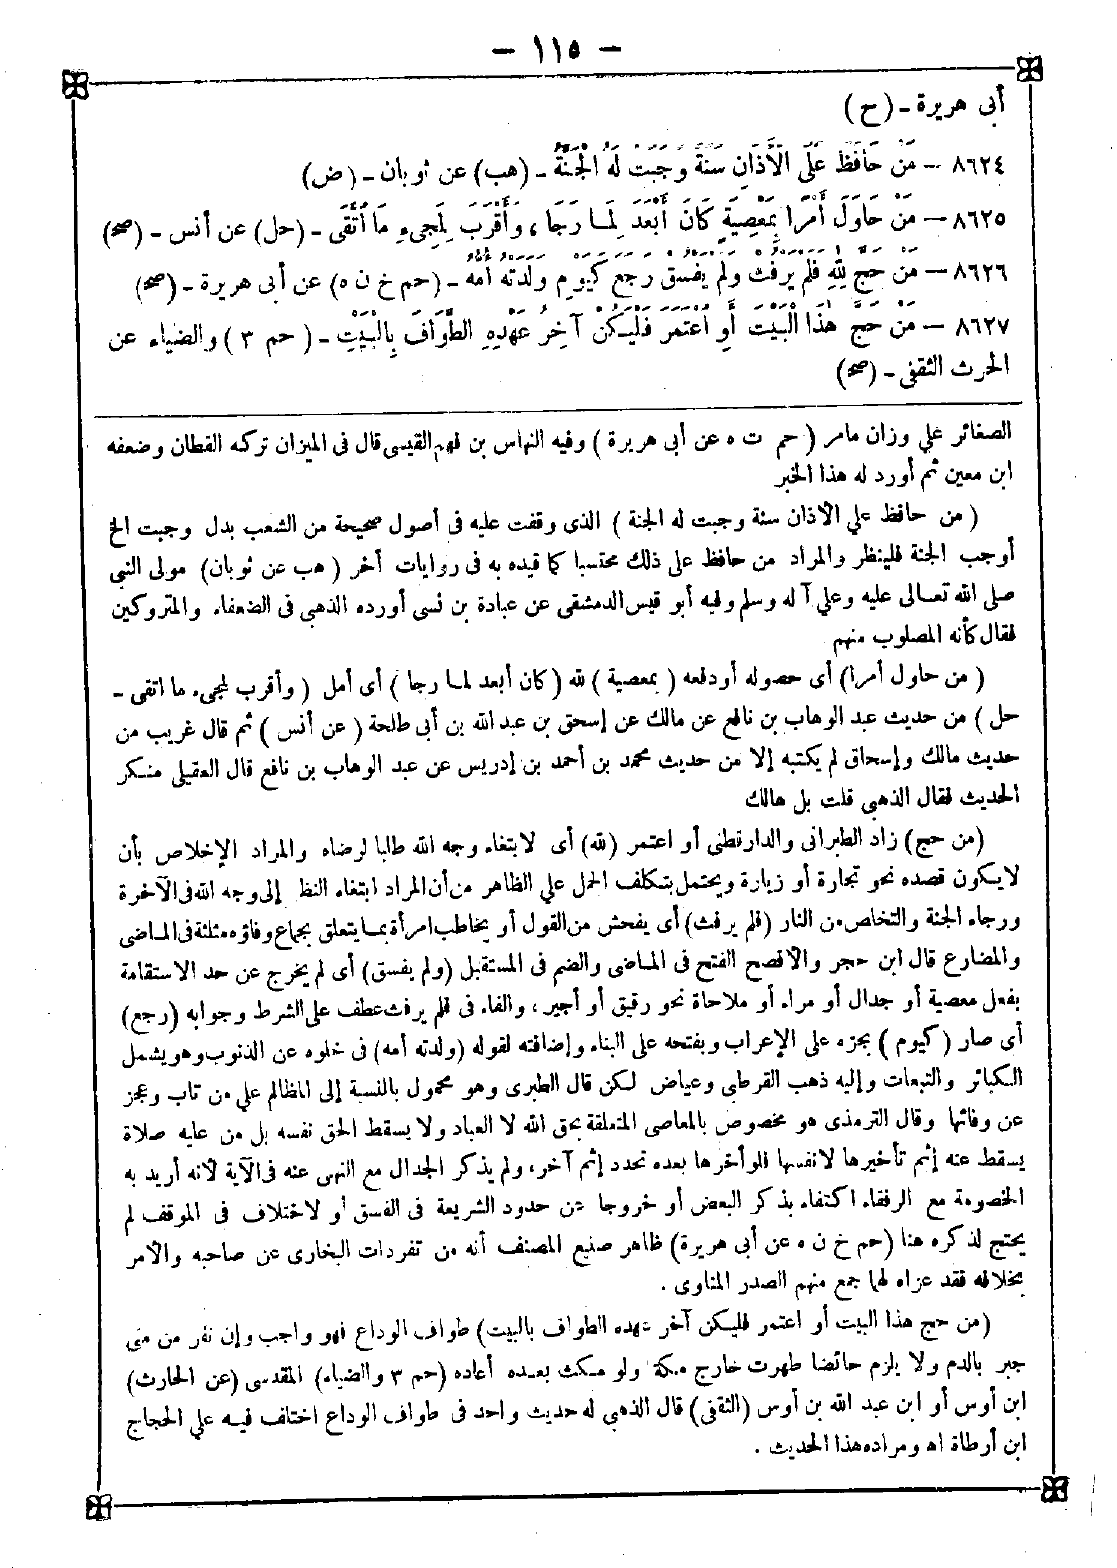 - ١١٥ -
أبى هريرة - (ح)
٨٦٢٤ - مَنْ حَافَظَ عَلَى الْأَذَانِ سَنَةً وَجَبَتْ لَهُ الْجَنَّةُ - (هب) عن ثوبان - (ض)
٨٦٢٥ - مَنْ حَاوَلَ أَمْرًا بِمَعْصِيَةٍ كَانَ أَبْعَدَ لِمَا رَجَا ، وَأَقْرَبَ لِمَجِىءِ مَا اتَّقَى - (حل) عن أنس - (صح)
٨٦٢٦ - مَنْ حَجَّ لِلّٰهِ فَلَمْ يَرْفُثْ وَلَمْ يَفْسُقْ رَجَعَ كَيَوْمِ وَلَدَتْهُ أُمُّهُ - (حم خ ن ه) عن أبى هريرة - (صح)
٨٦٢٧ - مَنْ حَجَّ هٰذَا الْبَيْتَ أَوِ اعْتَمَرَ فَلْيَكُنْ آخِرُ عَهْدِهِ الطَّوَافَ بِالْبَيْتِ - ( حم ٣ ) والضياء عن
الحرث الثقفى - (صح)
الصغائر علي وزان مامر ( حم ت ه عن أبى هريرة ) وفيه النهاس بن فهم القيسى قال فى الميزان تركه القطان وضعفه
ابن معين ثم أورد له هذا الخبر
( من حافظ علي الأذان سنة وجبت له الجنة ) الذى وقفت عليه فى أصول صحيحة من الشعب بدل وجبت الخ
أوجب الجنة فلينظر والمراد من حافظ على ذلك محتسبا كما قيده به فى روايات أخر ( هب عن ثوبان) مولى النبى
صلى الله تعالى عليه وعلي آله وسلم وفيه أبو قيس الدمشقى عن عبادة بن نسى أورده الذهبى فى الضعفاء والمتروكين
فقال كأنه المصلوب منهم
( من حاول أمرا) أى حصوله أودفعه ( بمعصية ) لله (كان أبعد لما رجا ) أى أمل ( وأقرب لمجىء ما اتقى -
حل ) من حديث عبد الوهاب بن نافع عن مالك عن إسحق بن عبد الله بن أبى طلحة ( عن أنس ) ثم قال غريب من
حديث مالك وإسحاق لم يكتبه إلا من حديث محمد بن أحمد بن إدريس عن عبد الوهاب بن نافع قال العقيلى منكر
الحديث فقال الذهبى قلت بل هالك
(من حج) زاد الطبرانى والدارقطنى أو اعتمر (لله) أى لابتغاء وجه الله طالبا لرضاه والمراد الإخلاص بأن
لايكون قصده نحو تجارة أو زيارة ويحتمل بتكلف الحمل علي الظاهر من أن المراد ابتغاء النظ إلى وجه الله فى الآخرة
ورجاء الجنة والتخلص من النار (فلم يرفث) أى يفحش من القول أو يخاطب امرأة بما يتعلق بجماع وفاؤه مثلثة فى الماضى
والمضارع قال ابن حجر والأفصح الفتح فى الماضى والضم فى المستقبل (ولم يفسق) أى لم يخرج عن حد الاستقامة
بفعل معصية أو جدال أو مراء أو ملاحاة نحو رفيق أو أجير ، والفاء فى فلم يرفث عطف على الشرط وجوابه (رجع)
أى صار ( كيوم ) بجره على الإعراب وبفتحه على البناء وإضافته لقوله (ولدته أمه) فى خلوه عن الذنوب وهو يشمل
الكبائر والتبعات وإليه ذهب القرطبى وعياض لكن قال الطبرى وهو محمول بالنسبة إلى المظالم علي من تاب وعجز
عن وفائها وقال الترمذى هو مخصوص بالمعاصى المتعلقة بحق الله لا العباد ولا يسقط الحق نفسه بل من عليه صلاة
يسقط عنه إثم تأخيرها لانفسها فلو أخرها بعده تجدد إثم آخر، ولم يذكر الجدال مع النهى عنه فى الآية لأنه أريد به
الخصومة مع الرفقاء اكتفاء بذكر البعض أو خروجا عن حدود الشريعة فى الفسق أو لاختلاف فى الموقف لم
يحتج لذكره هنا (حم خ ن ه عن أبى هريرة) ظاهر صنيع المصنف أنه من تفردات البخارى عن صاحبه والأمر
بخلافه فقد عزاه لهما جمع منهم الصدر المناوى .
(من حج هذا البيت أو اعتمر فليكن آخر عهده الطواف بالبيت) طواف الوداع فهو واجب وإن نفر من منى
جبر بالدم ولا يلزم حائضا طهرت خارج مكة ولو مكث بعده أعاده (حم ٣ والضياء) المقدسى (عن الحارث)
ابن أوس أو ابن عبد الله بن أوس (الثقفى) قال الذهبى له حديث واحد فى طواف الوداع اختلف فيه علي الحجاج
ابن أرطاة اه ومراده هذا الحديث .